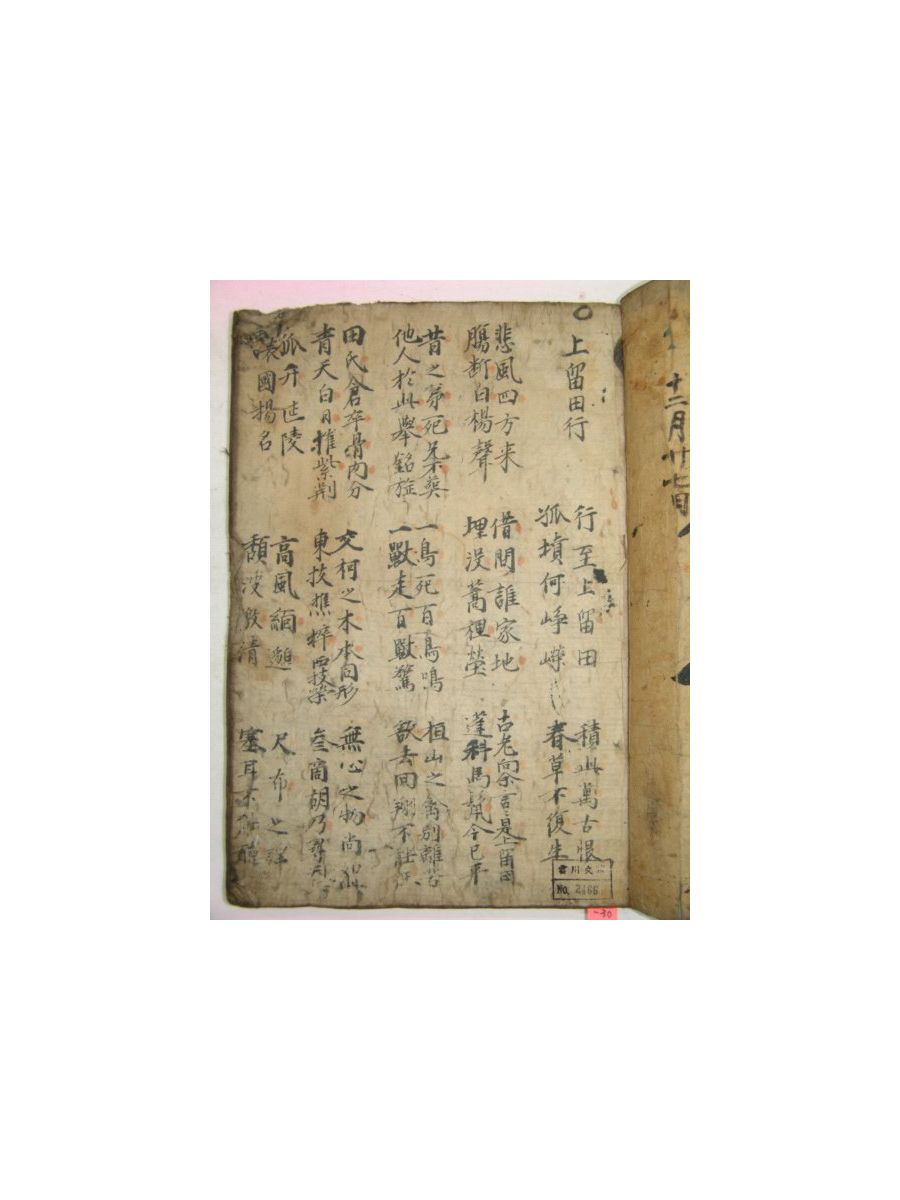 十二月廿七日
○上留田行
行至上留田
孤墳何崢嶸
積此萬古恨
春草不復生
悲風四方来
膓斷白楊聲
借問誰家地
埋没蒿裡塋
古老向余言言是上留田
蓬科馬鬣今已平
昔之弟死兄不葬
他人於此舉銘旌
一鳥死百鳥鳴
一獸走百獸驚
桓山之禽別離苦
欲去回翔不能征
田氏倉卒骨肉分
青天白日摧紫荆
交柯之木本同形
東枝憔悴西枝榮
無心之物尚如此
叅商胡乃尋
孤竹延陵
讓國揚名
高風緬邈
頹波激清
尺布之謠
塞耳不能聽
No. 2466
-30